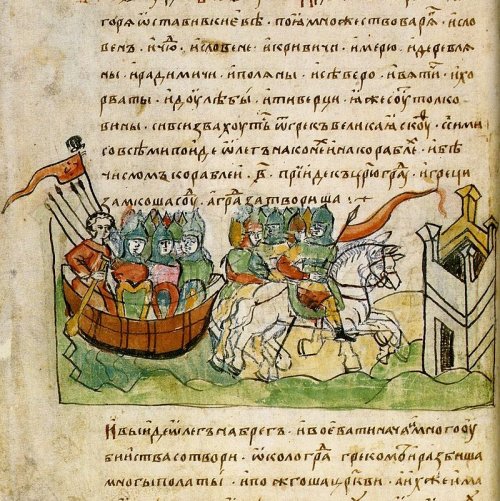 горѧ ѿстави в киевѣ · поꙗ множество варѧ · и сло
венъ · и чю · и словене · и кривичи · и мерю · и деревлѧ
ны · и радимичи · и полѧны · и северо · и вѧти · и хо
рваты · и доулѣбы · и тиверци · ꙗже соу толко
вины · си вси звахоуть ѿ грекъ великаꙗ скоуⷴ · с сими
со всеми поиде ѡлегъ на коне и на корабле · и бѣ
числомъ кораблеи · в҃ · прииде къ црюграⷣ · и греци
замкоша соуⷣ · а граⷣ затвориша · 
и выиде ѡлегъ на брегъ · и воевати нача · и много оу
биства сотвори · ѡколо граⷣ грекомъ · и разбиша
многы полаты · и пожгоша цркви · а ихже има